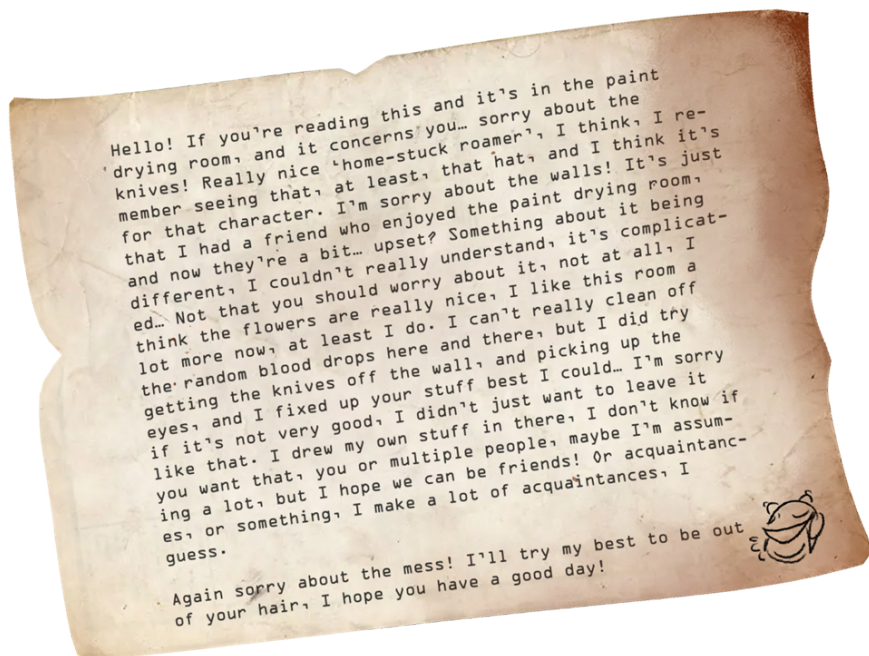 Hello! If you're reading this and it's in the paint
drying room, and it concerns you… sorry about the
knives! Really nice 'home-stuck roamer', I think, I re-
member seeing that, at least, that hat, and I think it's
for that character. I'm sorry about the walls! It's just
that I had a friend who enjoyed the paint drying room,
and now they're a bit… upset? Something about it being
different, I couldn't really understand, it's complicat-
ed… Not that you should worry about it, not at all, I
think the flowers are really nice, I like this room a
lot more now, at least I do. I can't really clean off
the random blood drops here and there, but I did try
getting the knives off the wall, and picking up the
eyes, and I fixed up your stuff best I could… I'm sorry
if it's not very good, I didn't just want to leave it
like that. I drew my own stuff in there, I don't know if
you want that, you or multiple people, maybe I'm assum-
ing a lot, but I hope we can be friends! Or acquaintanc-
es, or something, I make a lot of acquaintances, I
guess.
Again sorry about the mess! I'll try my best to be out
of your hair, I hope you have a good day!